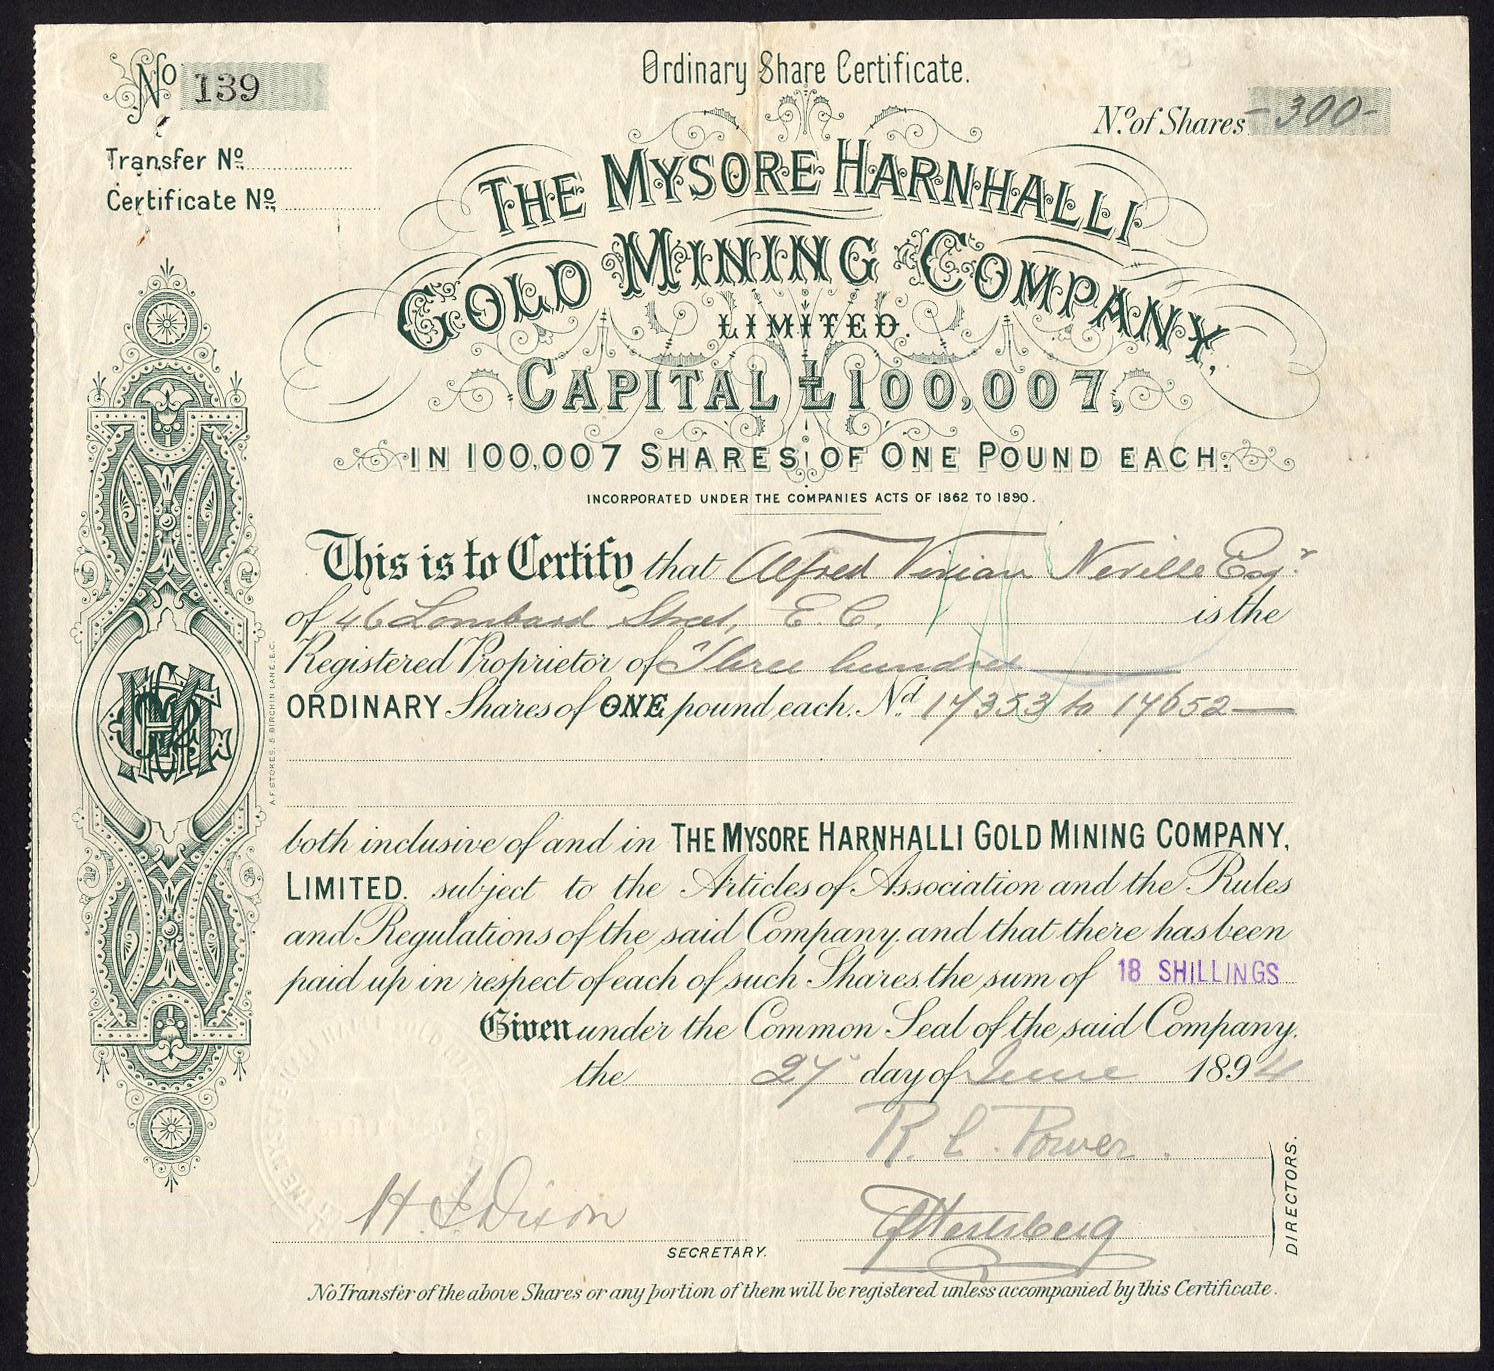 Ordinary Share Certificate.
No 139
No. of Shares -300-
Transfer No.
Certificate No.
THE MYSORE HARNHALLI
GOLD MINING COMPANY,
LIMITED.
CAPITAL £100,007,
IN 100,007 SHARES OF ONE POUND EACH.
INCORPORATED UNDER THE COMPANIES ACTS OF 1862 TO 1890.
This is to Certify that Alfred Vivian Neville Esqr
of 46 Lombard Street, E.C. is the
Registered Proprietor of Three hundred
ORDINARY Shares of ONE pound each. Nd. 17353 to 17652
both inclusive of and in THE MYSORE HARNHALLI GOLD MINING COMPANY,
LIMITED. subject to the Articles of Association and the Rules
and Regulations of the said Company, and that there has been
paid up in respect of each of such Shares, the sum of 18 SHILLINGS
Given under the Common Seal of the said Company.
the 27 day of June 1894
R. C. Power.
H. S. Dixon
SECRETARY.
DIRECTORS.
No Transfer of the above Shares or any portion of them will be registered unless accompanied by this Certificate.
A.F. STOKES, 5 BIRCHIN LANE, E.C.